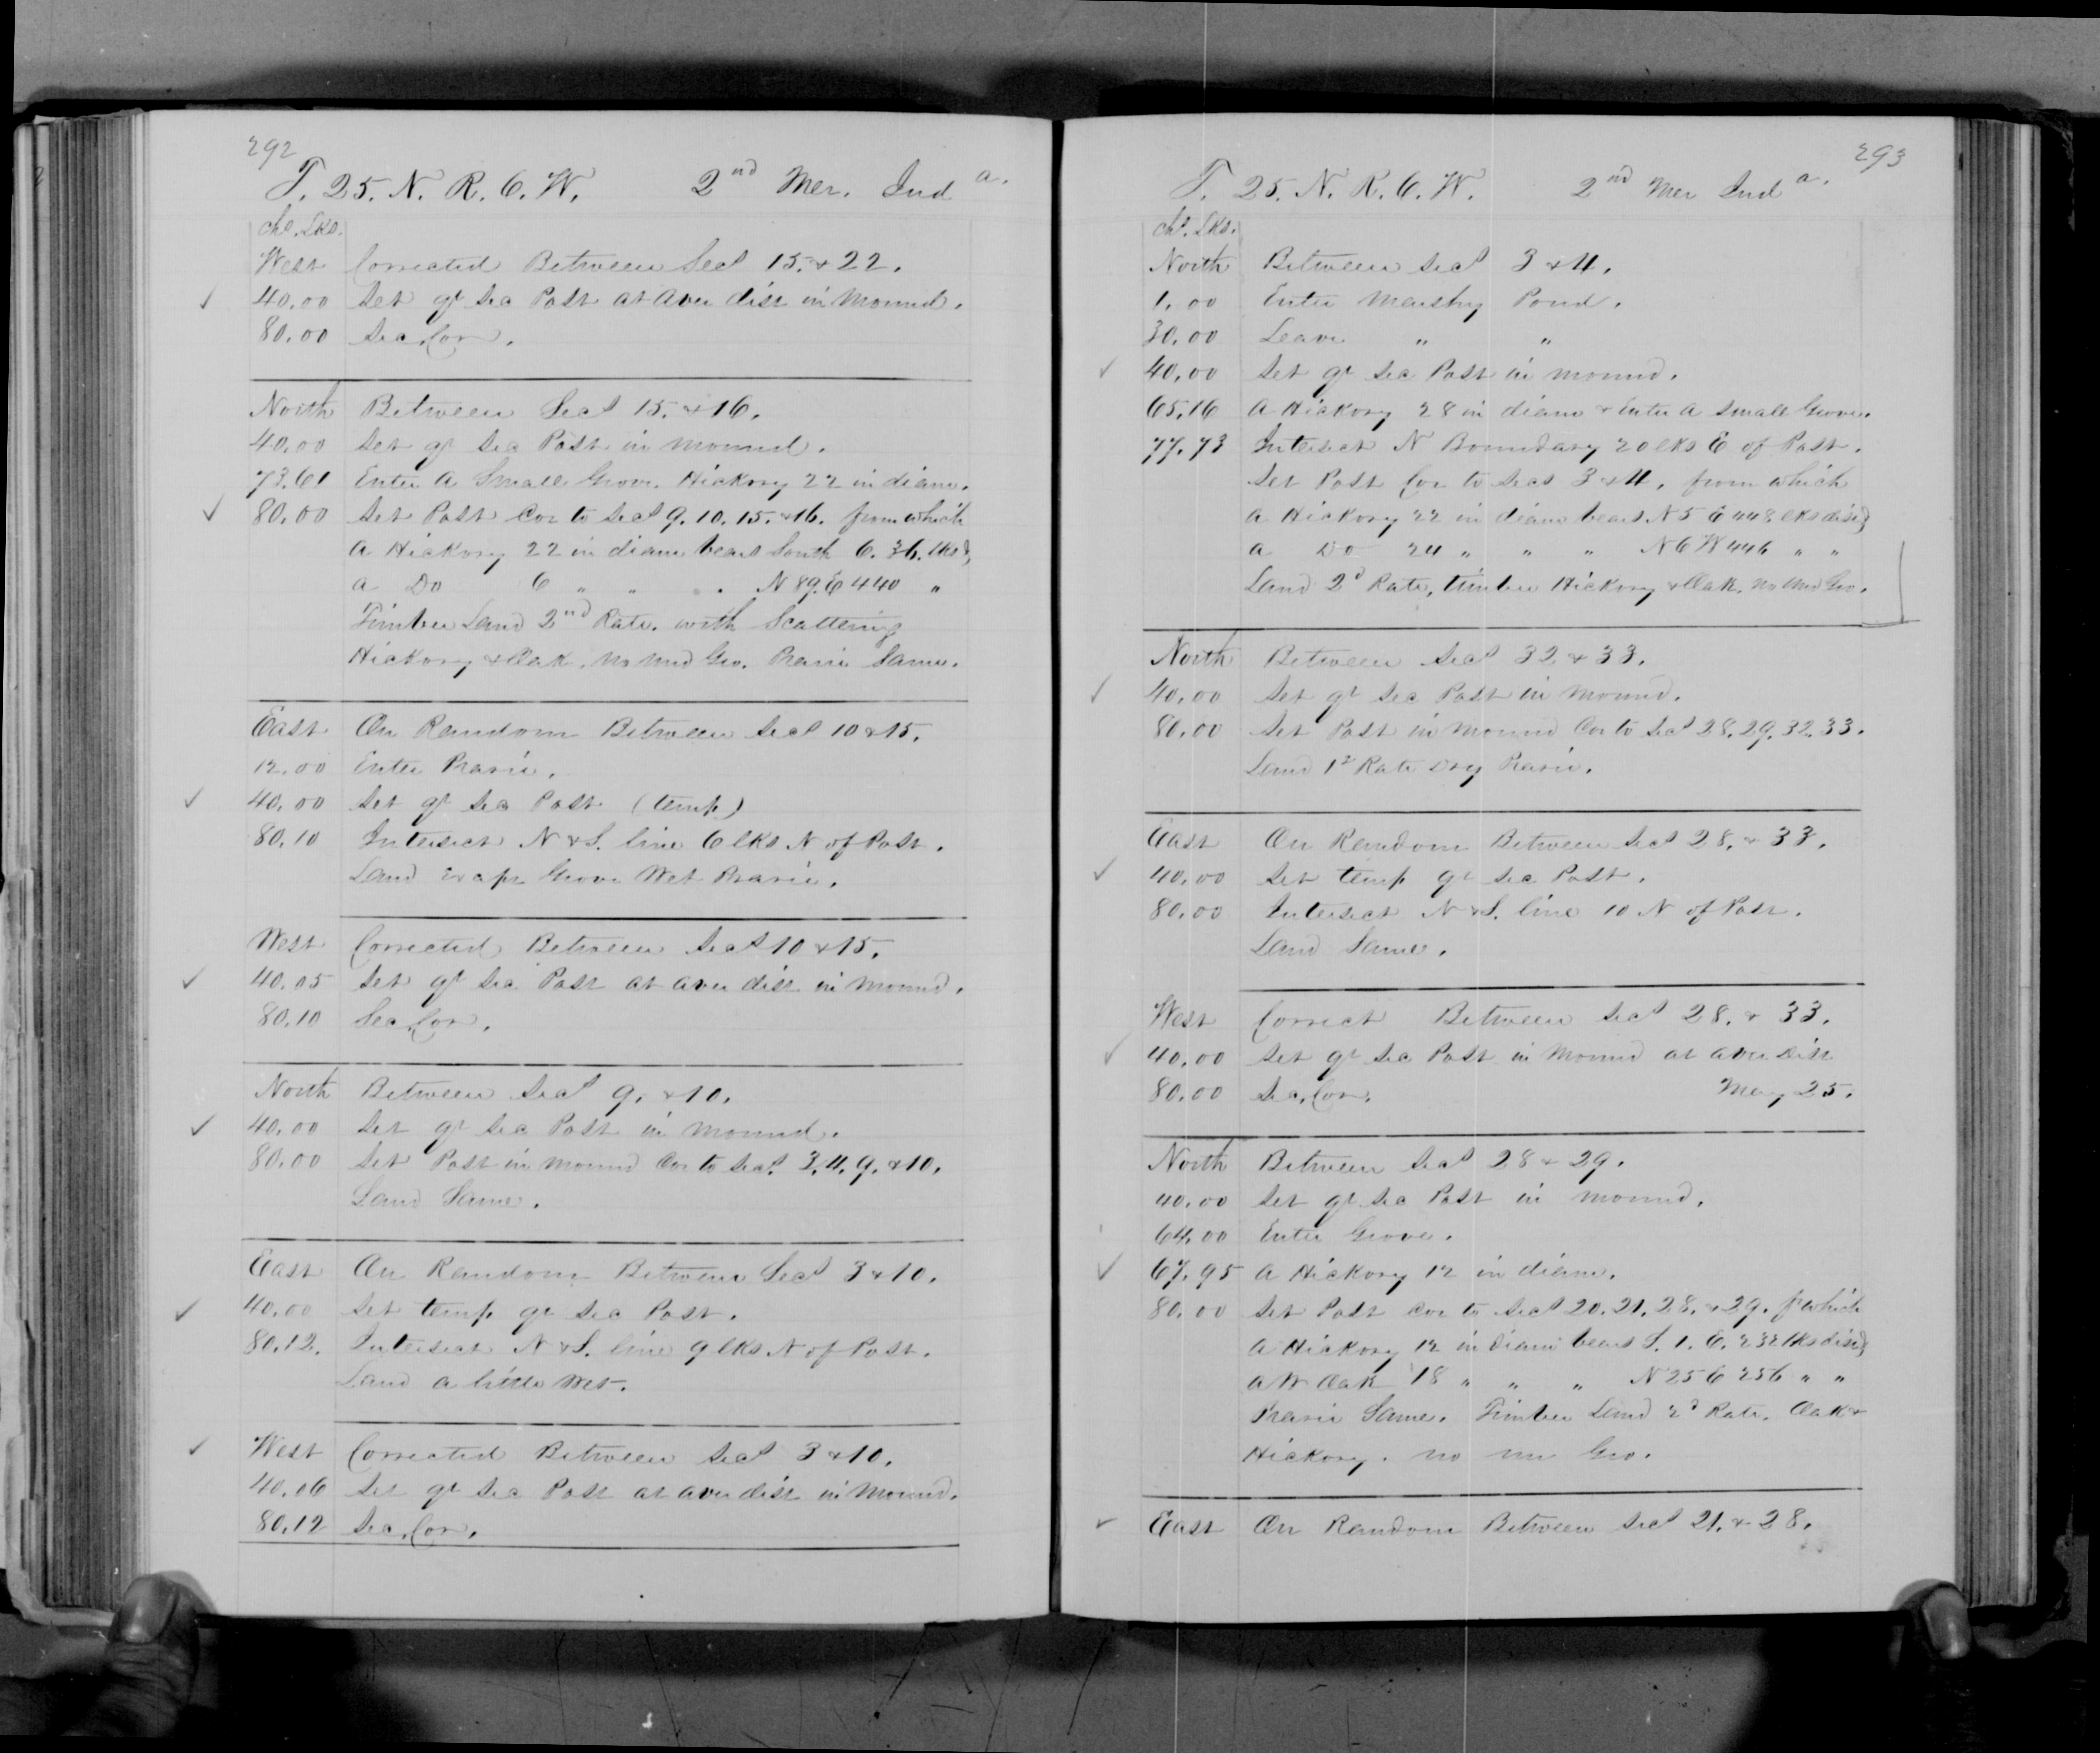 292
T. 25. N. R. 6. W. 2nd Mer. Inda.
Chs. Lks.
West Corrected Between Secs 15. & 22.
40.00 Set qr Sec Post at aver dist in Mound.
80.00 Sec. Cor.
North Between Secs 15. & 16.
40.00 Set qr Sec Post in Mound.
73.61 Enter a Small Grove. Hickory 22 in diam.
80.00 Set Post Cor to Secs 9. 10. 15. & 16. from which
a Hickory 22 in diam bears South 6. 36. lks &
a Do 6 " " " N 89. E 440 "
Timber Land 2nd Rate. with Scattering
Hickory & Oak. no und Gro. Prarie Same.
East On Random Between Secs 10 & 15.
12.00 Enter Prarie.
40.00 Set qr Sec Post (temp)
80.10 Intersect N & S. line 6 lks N of Post.
Land Grove Wet Prarie.
West Corrected Between Secs 10 & 15.
40.05 Set qr Sec Post at aver dist in Mound.
80.10 Sec. Cor.
North Between Secs 9. & 10.
40.00 Set qr Sec Post in Mound.
80.00 Set Post in Mound Cor to Secs 3. 4. 9. & 10.
Land Same.
East On Random Between Secs 3 & 10.
40.00 Set temp qr Sec Post.
80.12. Intersect N & S. line 9 lks N of Post.
Land a little Wet.
West Corrected Between Secs 3 & 10.
40.06 Set qr Sec Post at aver dist in Mound.
80.12 Sec. Cor.
293
T. 25. N. R. 6. W. 2nd Mer Inda.
Chs. Lks.
North Between Secs 3 & 4.
1.00 Enter Marshy Pond.
30.00 Leave " "
40.00 Set qr Sec Post in Mound.
65.16 A Hickory 28 in diam & Enter a Small Grove.
77.73 Intersect N Boundary 20 lks E of Post.
Set Post Cor to Secs 3 & 4. from which
a Hickory 22 in diam bears N 5 E 448 lks dist &
a Do 24 " " " N 6 W 446 " "
Land 2d Rate, timber Hickory & Oak. no und Gro.
North Between Secs 32 & 33.
40.00 Set qr Sec Post in Mound.
80.00 Set Post in Mound Cor to Secs 28. 29. 32. 33.
Land 1st Rate Dry Prarie.
East On Random Between Secs 28. & 33.
40.00 Set temp qr Sec Post.
80.00 Intersect N & S. line 10 N of Post.
Land Same.
West Correct Between Secs 28. & 33.
40.00 Set qr Sec Post in Mound at aver Dist
80.00 Sec. Cor. May 25.
North Between Secs 28 & 29.
40.00 Set qr Sec Post in Mound.
64.00 Enter Grove.
67.95 A Hickory 12 in diam.
80.00 Set Post Cor to Secs 20. 21. 28. & 29. f which
a Hickory 12 in Diam bears S. 1. E. 232 lks dist &
a W Oak 18 " " " N 25 E 256 " "
Prarie Same. Timber Land 2d Rate. Oak &
Hickory. no un Gro.
East On Random Between Secs 21. & 28.